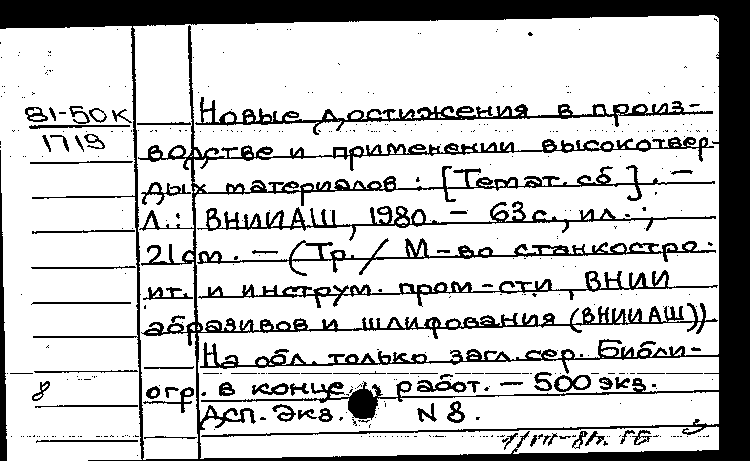 81-50К
1719
Новые достижения в произ-
водстве и применении высокотвер-
дых материалов : [Темат. сб.]. —
Л.: ВНИИАШ, 1980. — 63 с., ил.;
21 cm. — (Тр. / М-во станкостро-
ит. и инструм. пром-сти, ВНИИ
абразивов и шлифования (ВНИИАШ))
На обл. только загл. сер. Библи-
8
огр. в конце работ. — 500 экз.
Дсп. Экз. N 8.